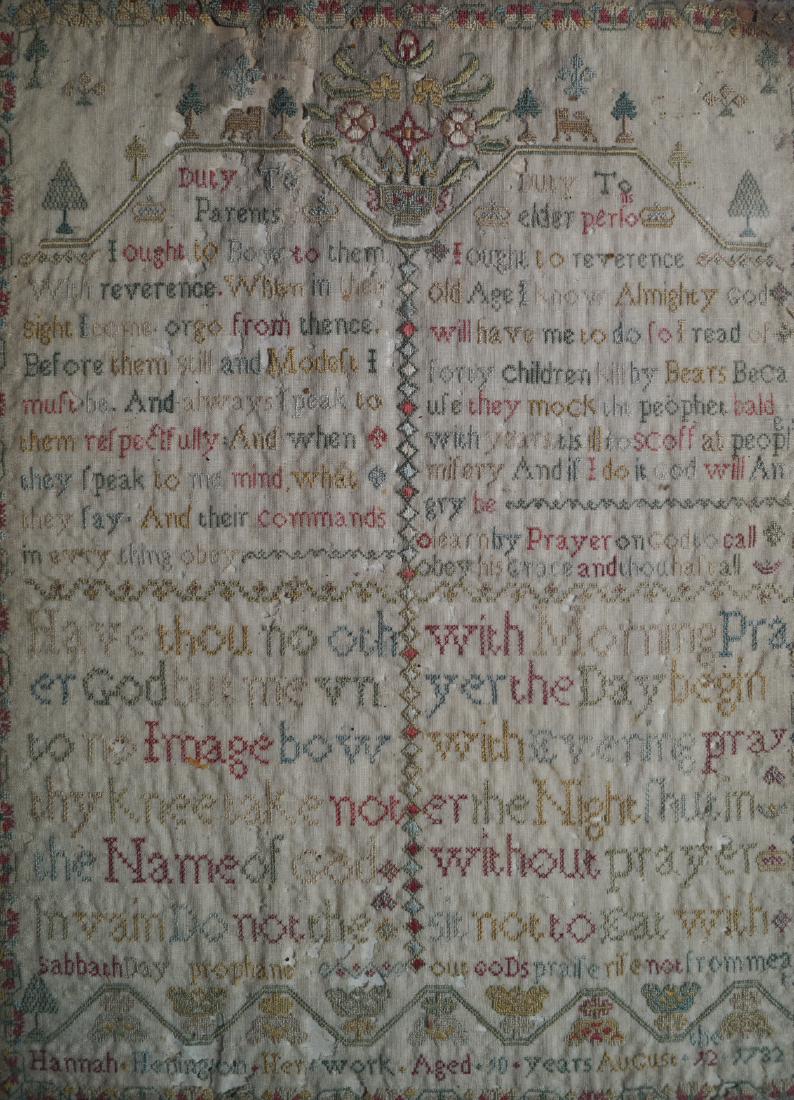 Duty To
Parents
I ought to Bow to them
With reverence. When in their
sight I come. or go from thence.
Before them still and Modeſt I
muſt be. And always ſpeak to
them reſpectfully And when
they ſpeak to me mind, what
they ſay. And their commands
in evry thing obey
Duty To
elder perſons
I ought to reverence
old Age I know Almighty God
will have me to do ſo I read of
forty children kill by Bears Beca
uſe they mock the prophet bald
with years tis ill to scoff at peopl
e
miſery And if I do it God will An
gry be
o learn by Prayer on God to call
obey his Grace and thou hal call
Have thou no oth
er God but me vn
to no Image bow
thy Knee take not
the Name of God
In vain Do not the
sabbath Day prophane
with Morning Pra
yer the Day begin
with Evening pray
er the Night ſhut in
without prayer
sit not to Eat with
out GoDs praiſe riſe not from mea
t
Hannah Her work Aged 10 years August the 12 1782